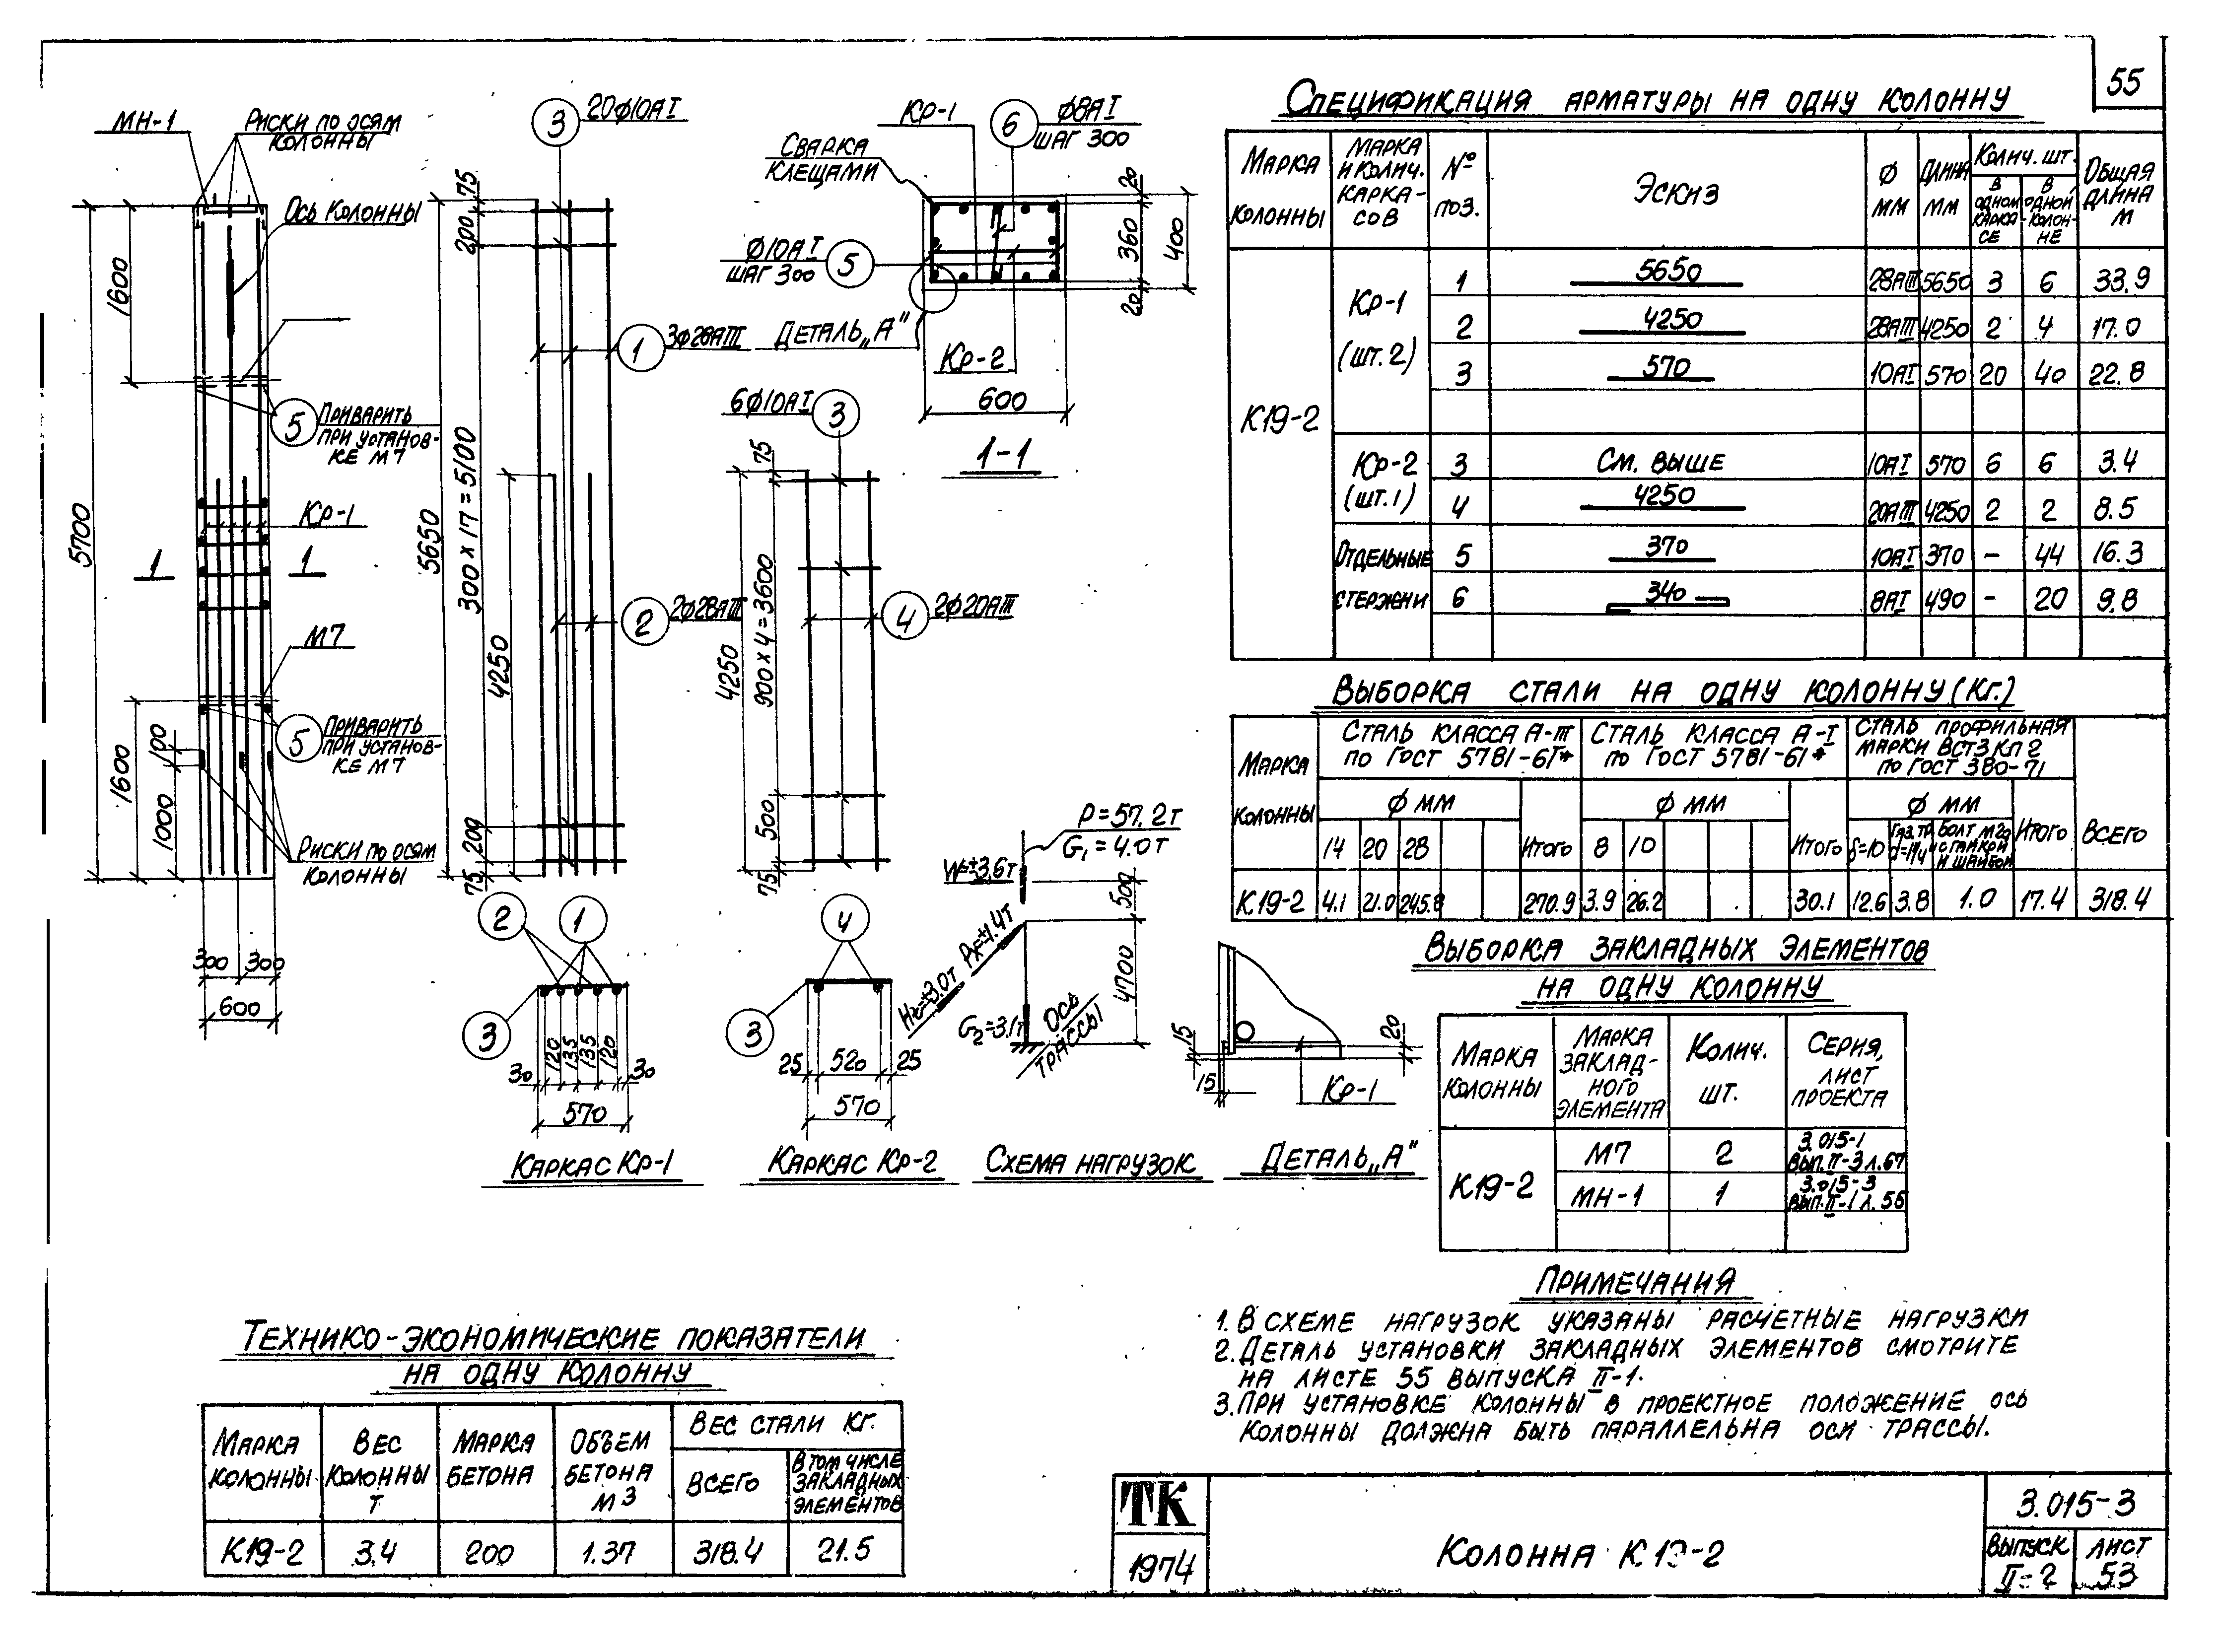 55
МН-1
Риски по осям
колонны
Ось колонны
1600
5700
5 Приварить
при установ-
ке М7
Кр-1
1 1
М7
5 Приварить
при установ-
ке М7
1600
100
1000
Риски по осям
колонны
300 300
600
3 20ф10АI
75
200
5650
300 х 17 = 5100
4250
1 3ф28АIII
2 2ф28АIII
200
75
2 1
3
30 120 135 135 120 30
570
Каркас Кр-1
6ф10АI 3
75
4250
900 х 4 = 3600
4 2ф20АIII
500
75
4
3
25 520 25
570
Каркас Кр-2
Кр-1
6 ф8АI
шаг 300
Сварка
клещами
ф10АI
шаг 300 5
Деталь „А"
Кр-2
20
360
400
20
600
1-1
P=57,2т
G₁=4.0т
W=±3,6т
500
Px=±1.4т
Hz=±3.0т
4700
G₂=3.1т
Ось
трассы
Схема нагрузок
15
15
20
Кр-1
Деталь „А"
Спецификация арматуры на одну колонну
Марка колонны | Марка и колич. каркасов | № поз. | Эскиз | ф мм | Длина мм | Колич. шт. | в одном каркасе | в одной колонне | Общая длина м
К19-2
Кр-1 (шт.2)
1 5650 28АIII 5650 3 6 33.9
2 4250 28АIII 4250 2 4 17.0
3 570 10АI 570 20 40 22.8
Кр-2 (шт.1)
3 См. выше 10АI 570 6 6 3.4
4 4250 20АIII 4250 2 2 8.5
Отдельные стержни
5 370 10АI 370 - 44 16.3
6 340 8АI 490 - 20 9.8
Выборка стали на одну колонну (кг.)
Марка колонны
Сталь класса А-III
по ГОСТ 5781-61*
Сталь класса А-I
по ГОСТ 5781-61*
Сталь профильная
марки ВСт3кп2
по ГОСТ 380-71
Всего
ф мм ф мм ф мм
14 20 28 Итого 8 10 Итого δ=10 Газ. тр. d=1¼ Болт М20 с гайкой и шайбой Итого
К19-2 4.1 21.0 245.8 270.9 3.9 26.2 30.1 12.6 3.8 1.0 17.4 318.4
Выборка закладных элементов
на одну колонну
Марка колонны | Марка закладного элемента | Колич. шт. | Серия, лист проекта
К19-2
М7 2 3.015-1 вып.II-3 л.67
МН-1 1 3.015-3 вып.II-1 л.55
Примечания
1. В схеме нагрузок указаны расчетные нагрузки
2. Деталь установки закладных элементов смотрите
на листе 55 выпуска II-1.
3. При установке колонны в проектное положение ось
колонны должна быть параллельна оси трассы.
Технико-экономические показатели
на одну колонну
Марка колонны | Вес колонны т | Марка бетона | Объем бетона м3 | Вес стали кг. | Всего | В том числе закладных элементов
К19-2 3,4 200 1.37 318.4 21.5
ТК
1974
Колонна К19-2
3.015-3
Выпуск II-2
Лист 53